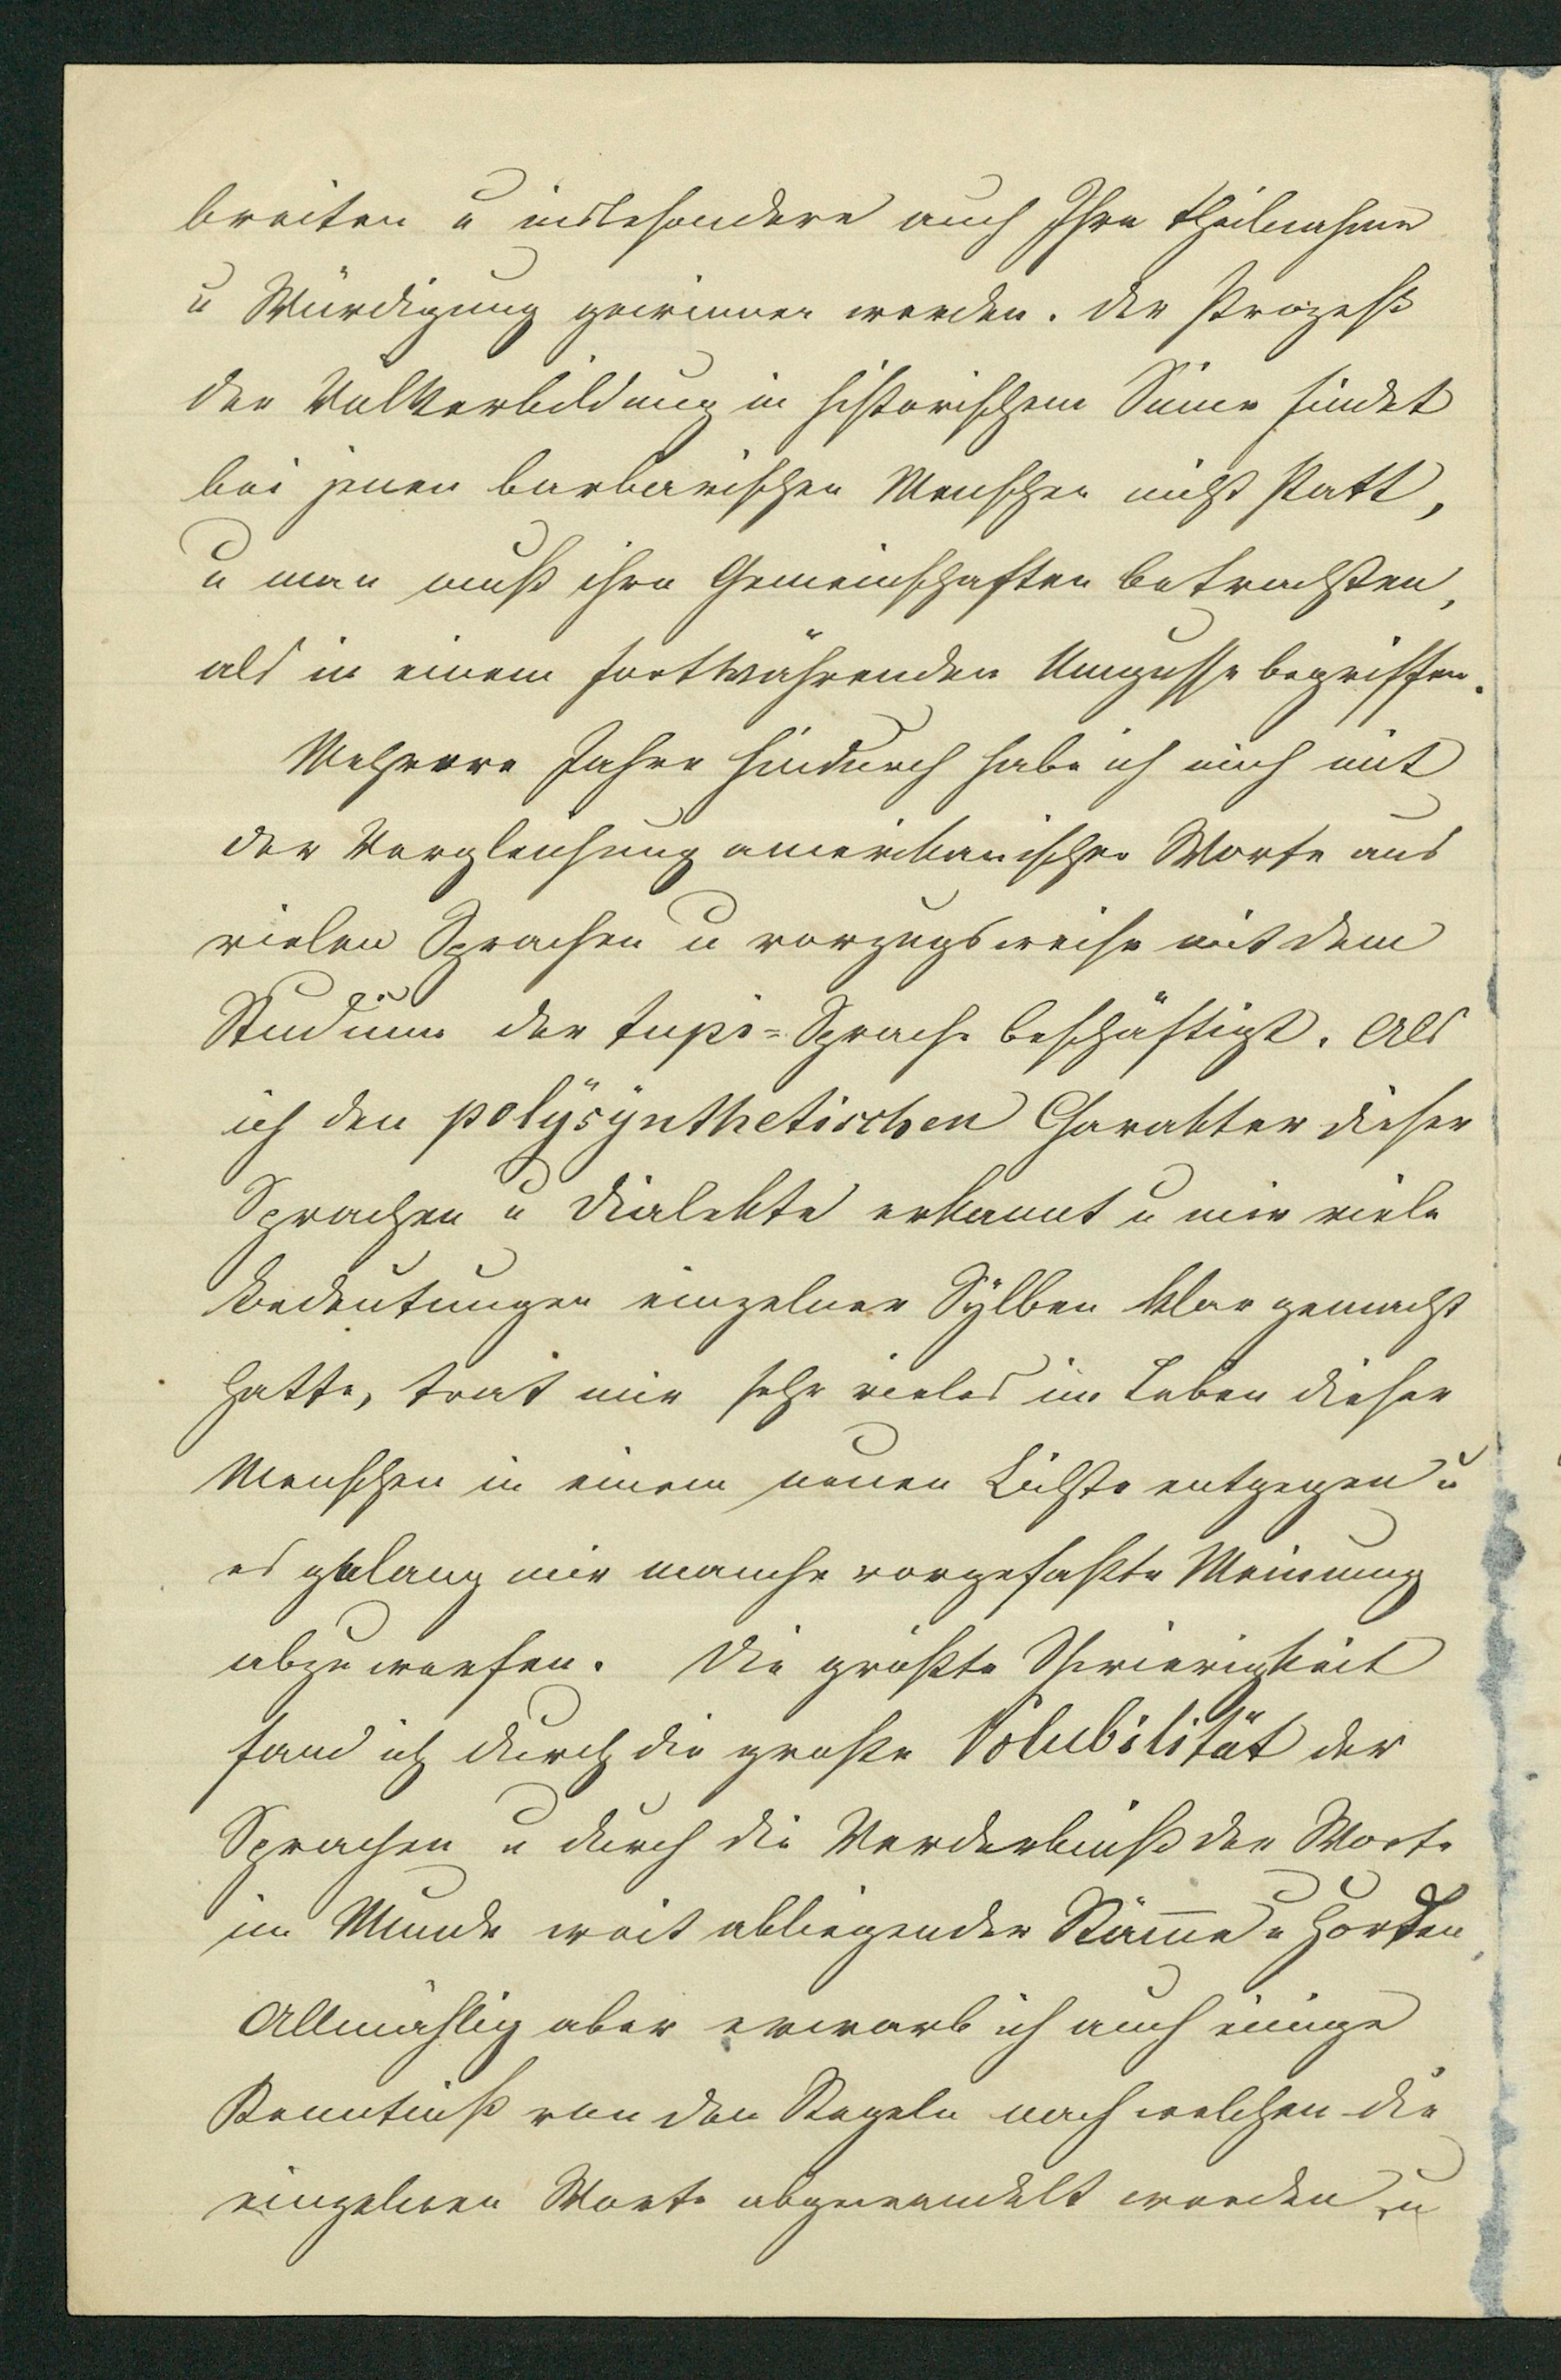 breiten u insbesondere auch Ihre Theilnahme
u Würdigung gewinnen werden. Der Prozeß
der Volkerbildung in historischem Sinne findet
bei jenen barbarischen Menschen nicht statt,
u man muß ihre Gemeinschaften betrachten,
als in einem fortwährenden Umgusse begriffen.
Mehrere Jahre hindurch habe ich mich mit
der Vergleichung amerikanischer Worte aus
vielen Sprachen u vorzugsweise mit dem
Studium der Tupi=Sprache beschäftigt. Als
ich den polÿsÿnthetischen Charakter dieser
Sprachen u Dialekte erkannt u mir viele
Bedeutungen einzelner Sÿlben klar gemacht
hatte, trat mir sehr vieles im Leben dieser
Menschen in einem neuen Lichte entgegen u
es gelang mir manche vorgefaßte Meinung
abzuwerfen. Die größte Schwierigkeit
fand ich durch die große Volubilität der
Sprachen u durch die Verderbniß der Worte
im Munde weit abliegender Stam̄e u Horden,
Allmählig aber erwarb ich auch einige
Kenntniß von den Regeln nach welchen die
einzelnen Worte abgewandelt werden, u